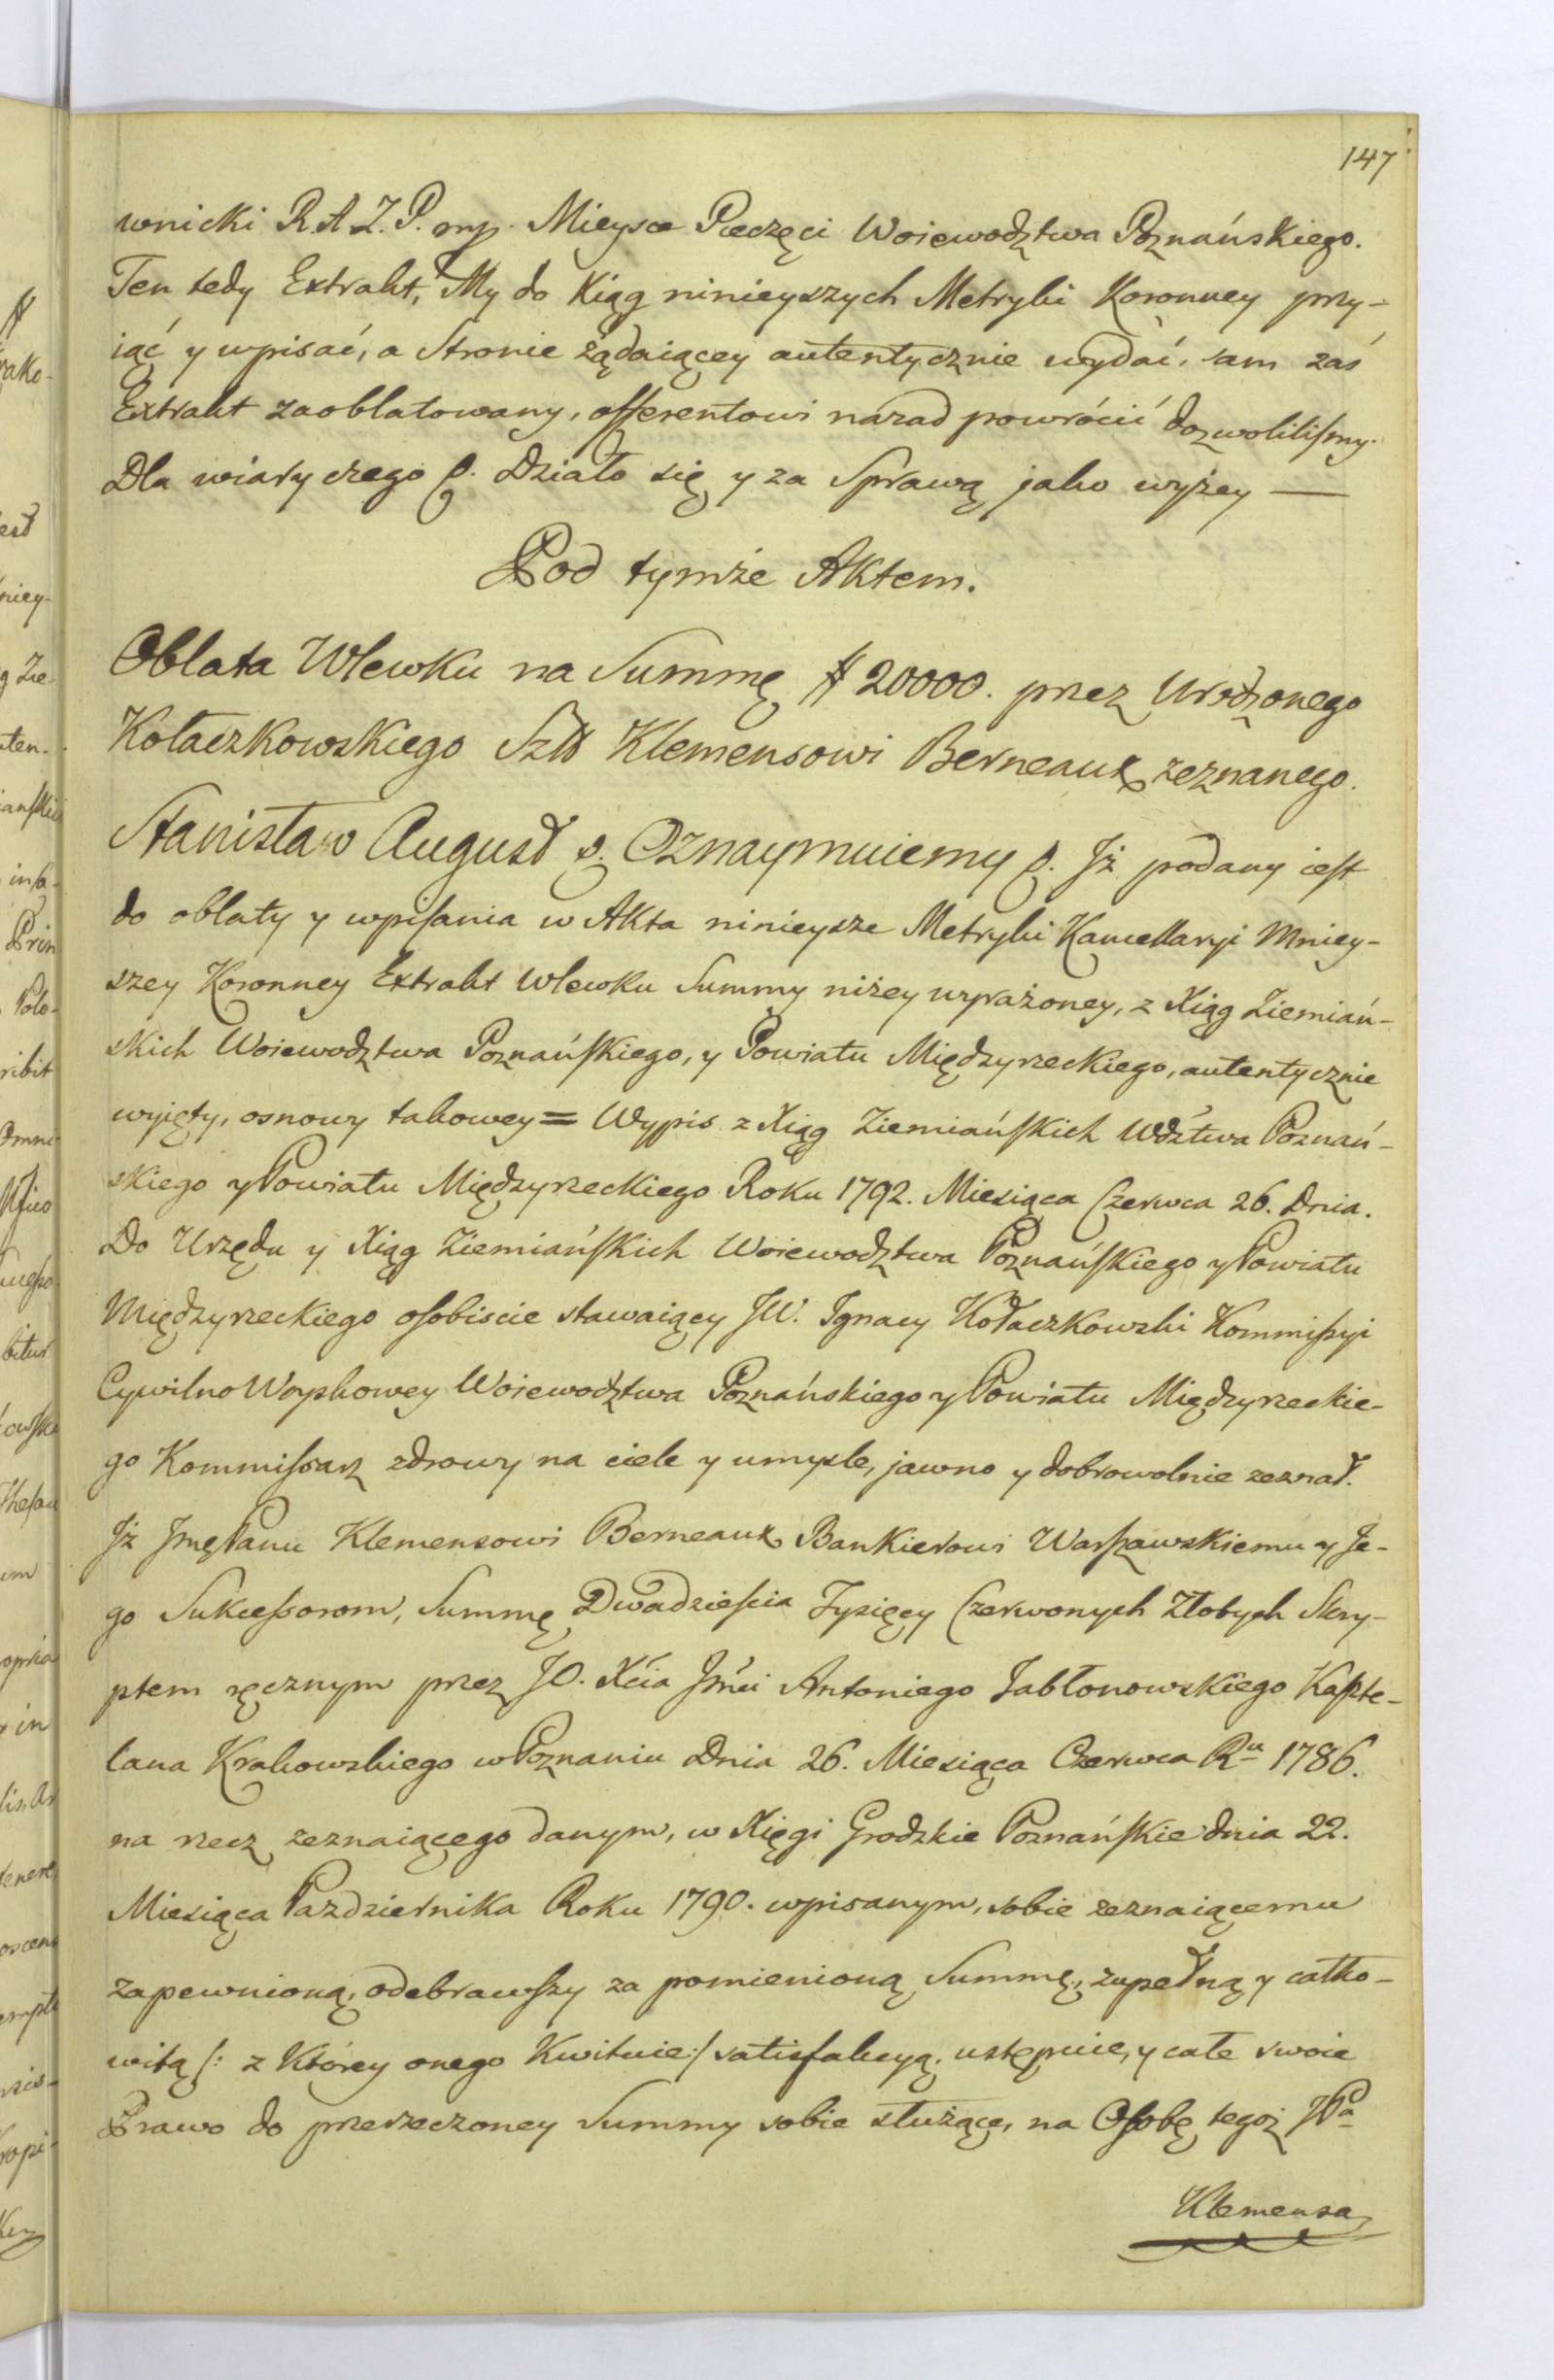 147
wnicki R.A.Z.P. mp. Mieysce Pieczęci Woiewodztwa Poznańskiego.
Ten tedy Extrakt, My do Xiąg ninieyszych Metryki Koronney przy-
iąć y wpisać, a Stronie żądaiącey autentycznie wydać, sam zaś
Extrakt zaoblatowany, offerentowi nazad powrócić dozwoliliſmy.
Dla wiary czego p. Działo się y za Sprawą jako wyżey —
Pod tymże Aktem.
Oblata Wlewku na Summę # 20000. przez Urodzonego
Kołaczkowskiego Szl. Klemensowi Berneaux zeznanego.
Stanisław August p. Oznaymuiemy p. Jż podany ieſt
do oblaty y wpiſania w Akta ninieysze Metryki Kancellaryi Mniey-
szey Koronney Extrakt Wlewku Summy niżey wyrażoney, z Xiąg Ziemiań-
skich Woiewodztwa Poznańſkiego, y Powiatu Międzyrzeckiego, autentycznie
wyięty, osnowy takowey = Wypis z Xiąg Ziemiańſkich Wdztwa Poznań-
skiego y Powiatu Międzyrzeckiego Roku 1792. Miesiąca Czerwca 26. Dnia.
Do Urzędu y Xiąg Ziemiańſkich Woiewodztwa Poznańſkiego y Powiatu
Międzyrzeckiego oſobiscie stawaiący JW. Jgnacy Kołaczkowski Kommiſsyi
Cywilno Woyskowey Woiewodztwa Poznańskiego y Powiatu Międzyrzeckie-
go Kommiſsarz zdrowy na ciele y umysle, jawno y dobrowolnie zeznał.
Jż Jmę Panu Klemensowi Berneaux Bankierowi Warſzawskiemu y Je-
go Sukceſsorom, Summę Dwadzieſcia Tysięcy Czerwonych Złotych Skry-
ptem ręcznym przez JO. Xcia Jmci Antoniego Jabłonowskiego Kaſzte-
lana Krakowskiego w Poznaniu Dnia 26. Miesiąca Czerwca Ru 1786.
na rzecz zeznaiącego danym, w Xięgi Grodzkie Poznańſkie dnia 22.
Miesiąca Pazdziernika Roku 1790. wpisanym, sobie zeznaiącemu
zapewnioną, odebrawſzy za pomienioną Summę, zupełną y całko-
witą /: z Którey onego Kwituie :/ satisfakcyą, ustępuie, y całe swoie
Prawo do przerzeczoney Summy sobie służące, na Oſobę tegoż JPa
Klemensa